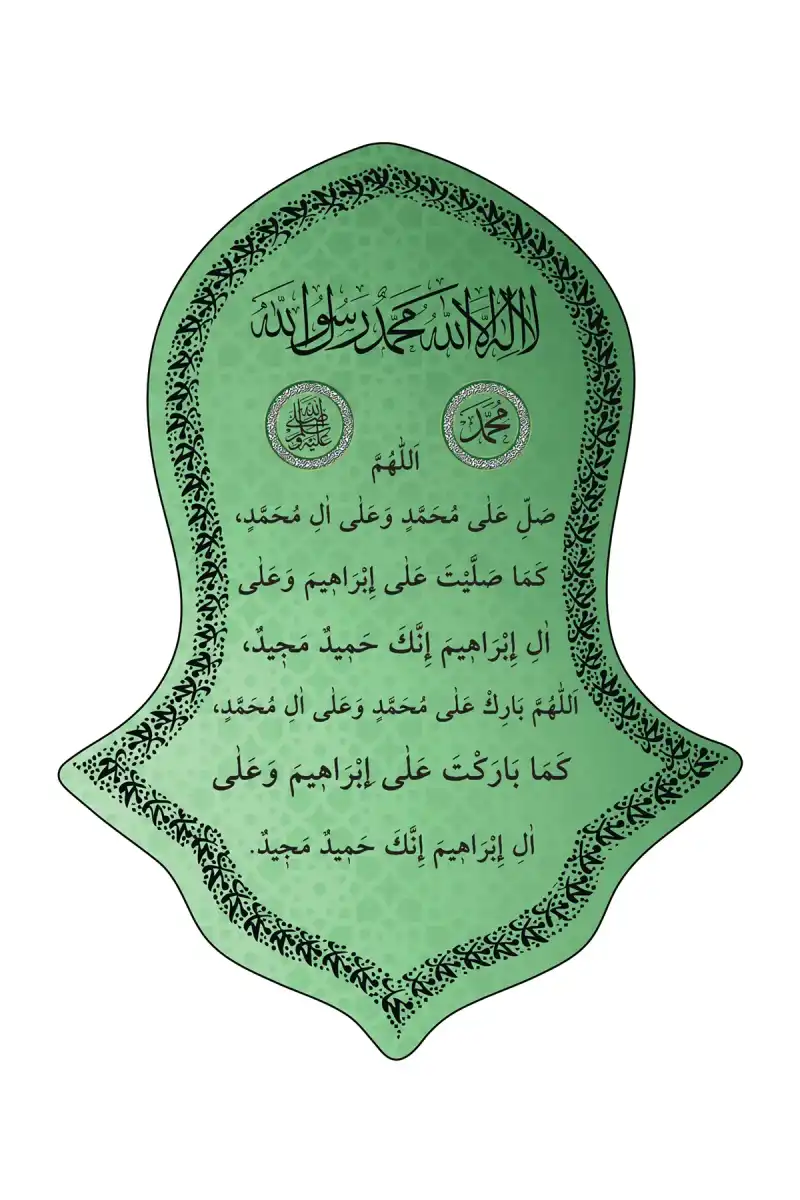 لا اله الا الله محمد رسول الله
مُحَمَّد
صلى الله عليه وسلم
اَللّٰهُمَّ
صَلِّ عَلٰى مُحَمَّدٍ وَعَلٰى اٰلِ مُحَمَّدٍ،
كَمَا صَلَّيْتَ عَلٰى إِبْرَاهٖيمَ وَعَلٰى
اٰلِ إِبْرَاهٖيمَ إِنَّكَ حَمٖيدٌ مَجٖيدٌ،
اَللّٰهُمَّ بَارِكْ عَلٰى مُحَمَّدٍ وَعَلٰى اٰلِ مُحَمَّدٍ،
كَمَا بَارَكْتَ عَلٰى إِبْرَاهٖيمَ وَعَلٰى
اٰلِ إِبْرَاهٖيمَ إِنَّكَ حَمٖيدٌ مَجٖيدٌ.